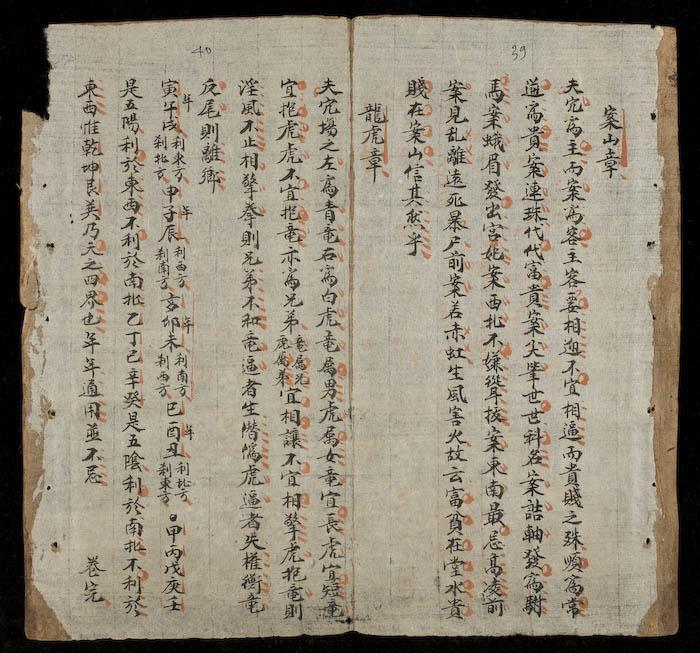 39
案山章
夫穴為主而案為客主客要相迎不宜相逼而貴賤之殊順為常
逆為貴案連珠代代富貴案尖筆世世科名案誥軸發為駙
馬案蛾眉發出宮妃案西北不嫌聳拔案東南最忌高凌前
案見乱離遠死暴尸前案若赤虹生風害火故云富貧在堂水貴
賤在案山信其然乎
龍虎章
40
夫穴塲之左為青竜右為白虎竜属男虎属女竜宜長虎宜短竜
宜抱虎虎不宜抱竜亦為兄弟竜属兄虎属弟宜相讓不宜相擎虎抱竜則
淫風不止相擎拳則兄弟不和竜逼者生僭偽虎逼者失權衡竜
反尾則離鄉
寅午戌年利東方利北方申子辰年利西方利南方亥卯未年利南方利西方巳酉丑年利北方利東方日甲丙戊庚壬
是五陽利於東西不利於南北乙丁己辛癸是五陰利於南北不利於
東西惟乾坤艮巽乃天之四界也年年通用並不忌
卷完